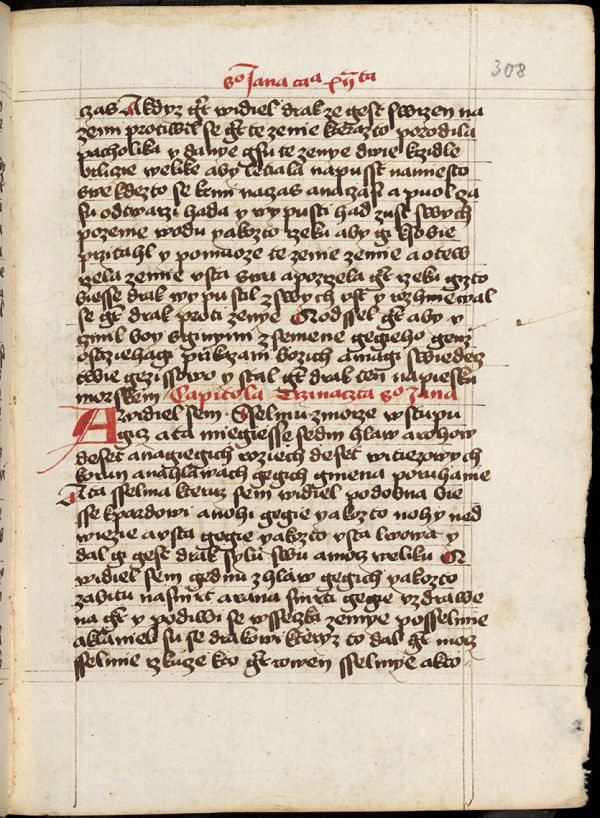 308
czas A kdyz gt widiel drak ze gest swrzen na
zemi protiwil se gt te zenie kterazto porodila
pacholika y danye gsu te zenye dwie krzidle
orlizie welike aby letiala na pusst na miesto
swe kdezto se krmi na czas a na czasi a puol cza
su od twarzi hada y wypusti had z ust swych
po zenie wodu yakozto rzeku aby gi
przitahl y pomuoze te zenie zemie a otew
rzela zemie usta swa a pozrzela gt rzeku gizto
biesse drak wypustil z swych ust y rozhniewal
se gt drak proti zenye Y odssel gt aby v
czinil boy s ginymi z semene gegieho genz
ostrziehagi prikazani bozich a magi swiedecz
twie gezissowo y stal gt drak ten na piesku
morskem Capitola Trzinaczta So Jana
A widiel sem Sselmu z morze wstupu
agicz a ta miegiesse sedm hlaw a rohow
deset a na gegich roziech deset witiezowych
korun a na hlawach gegich gmena poruhanie
A ta sselma kteruz sem widiel podobna bie
sse kpardowi a nohy gegie yakozto nohy ned
wiezie a usta gegie yakozto usta lwowa y
dal gi gest drak sylu swu a mocz weliku A
widiel sem gednu z hlaw gegich yakozto
zabitu na smrt a rana smrti gegie uzdrawe
na gt y podiwi se wsseczka zemye po sselmie
a klanieli su se drakowi kteryz to dal gt mocz
sselmie rzkucze kto gt rowen sselmye a kto